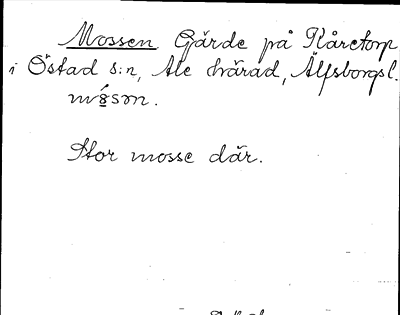 Mossen Gärde på Kåretorp
i Östad s:n, Ale härad, Älfsborgsl.
Stor mosse där.